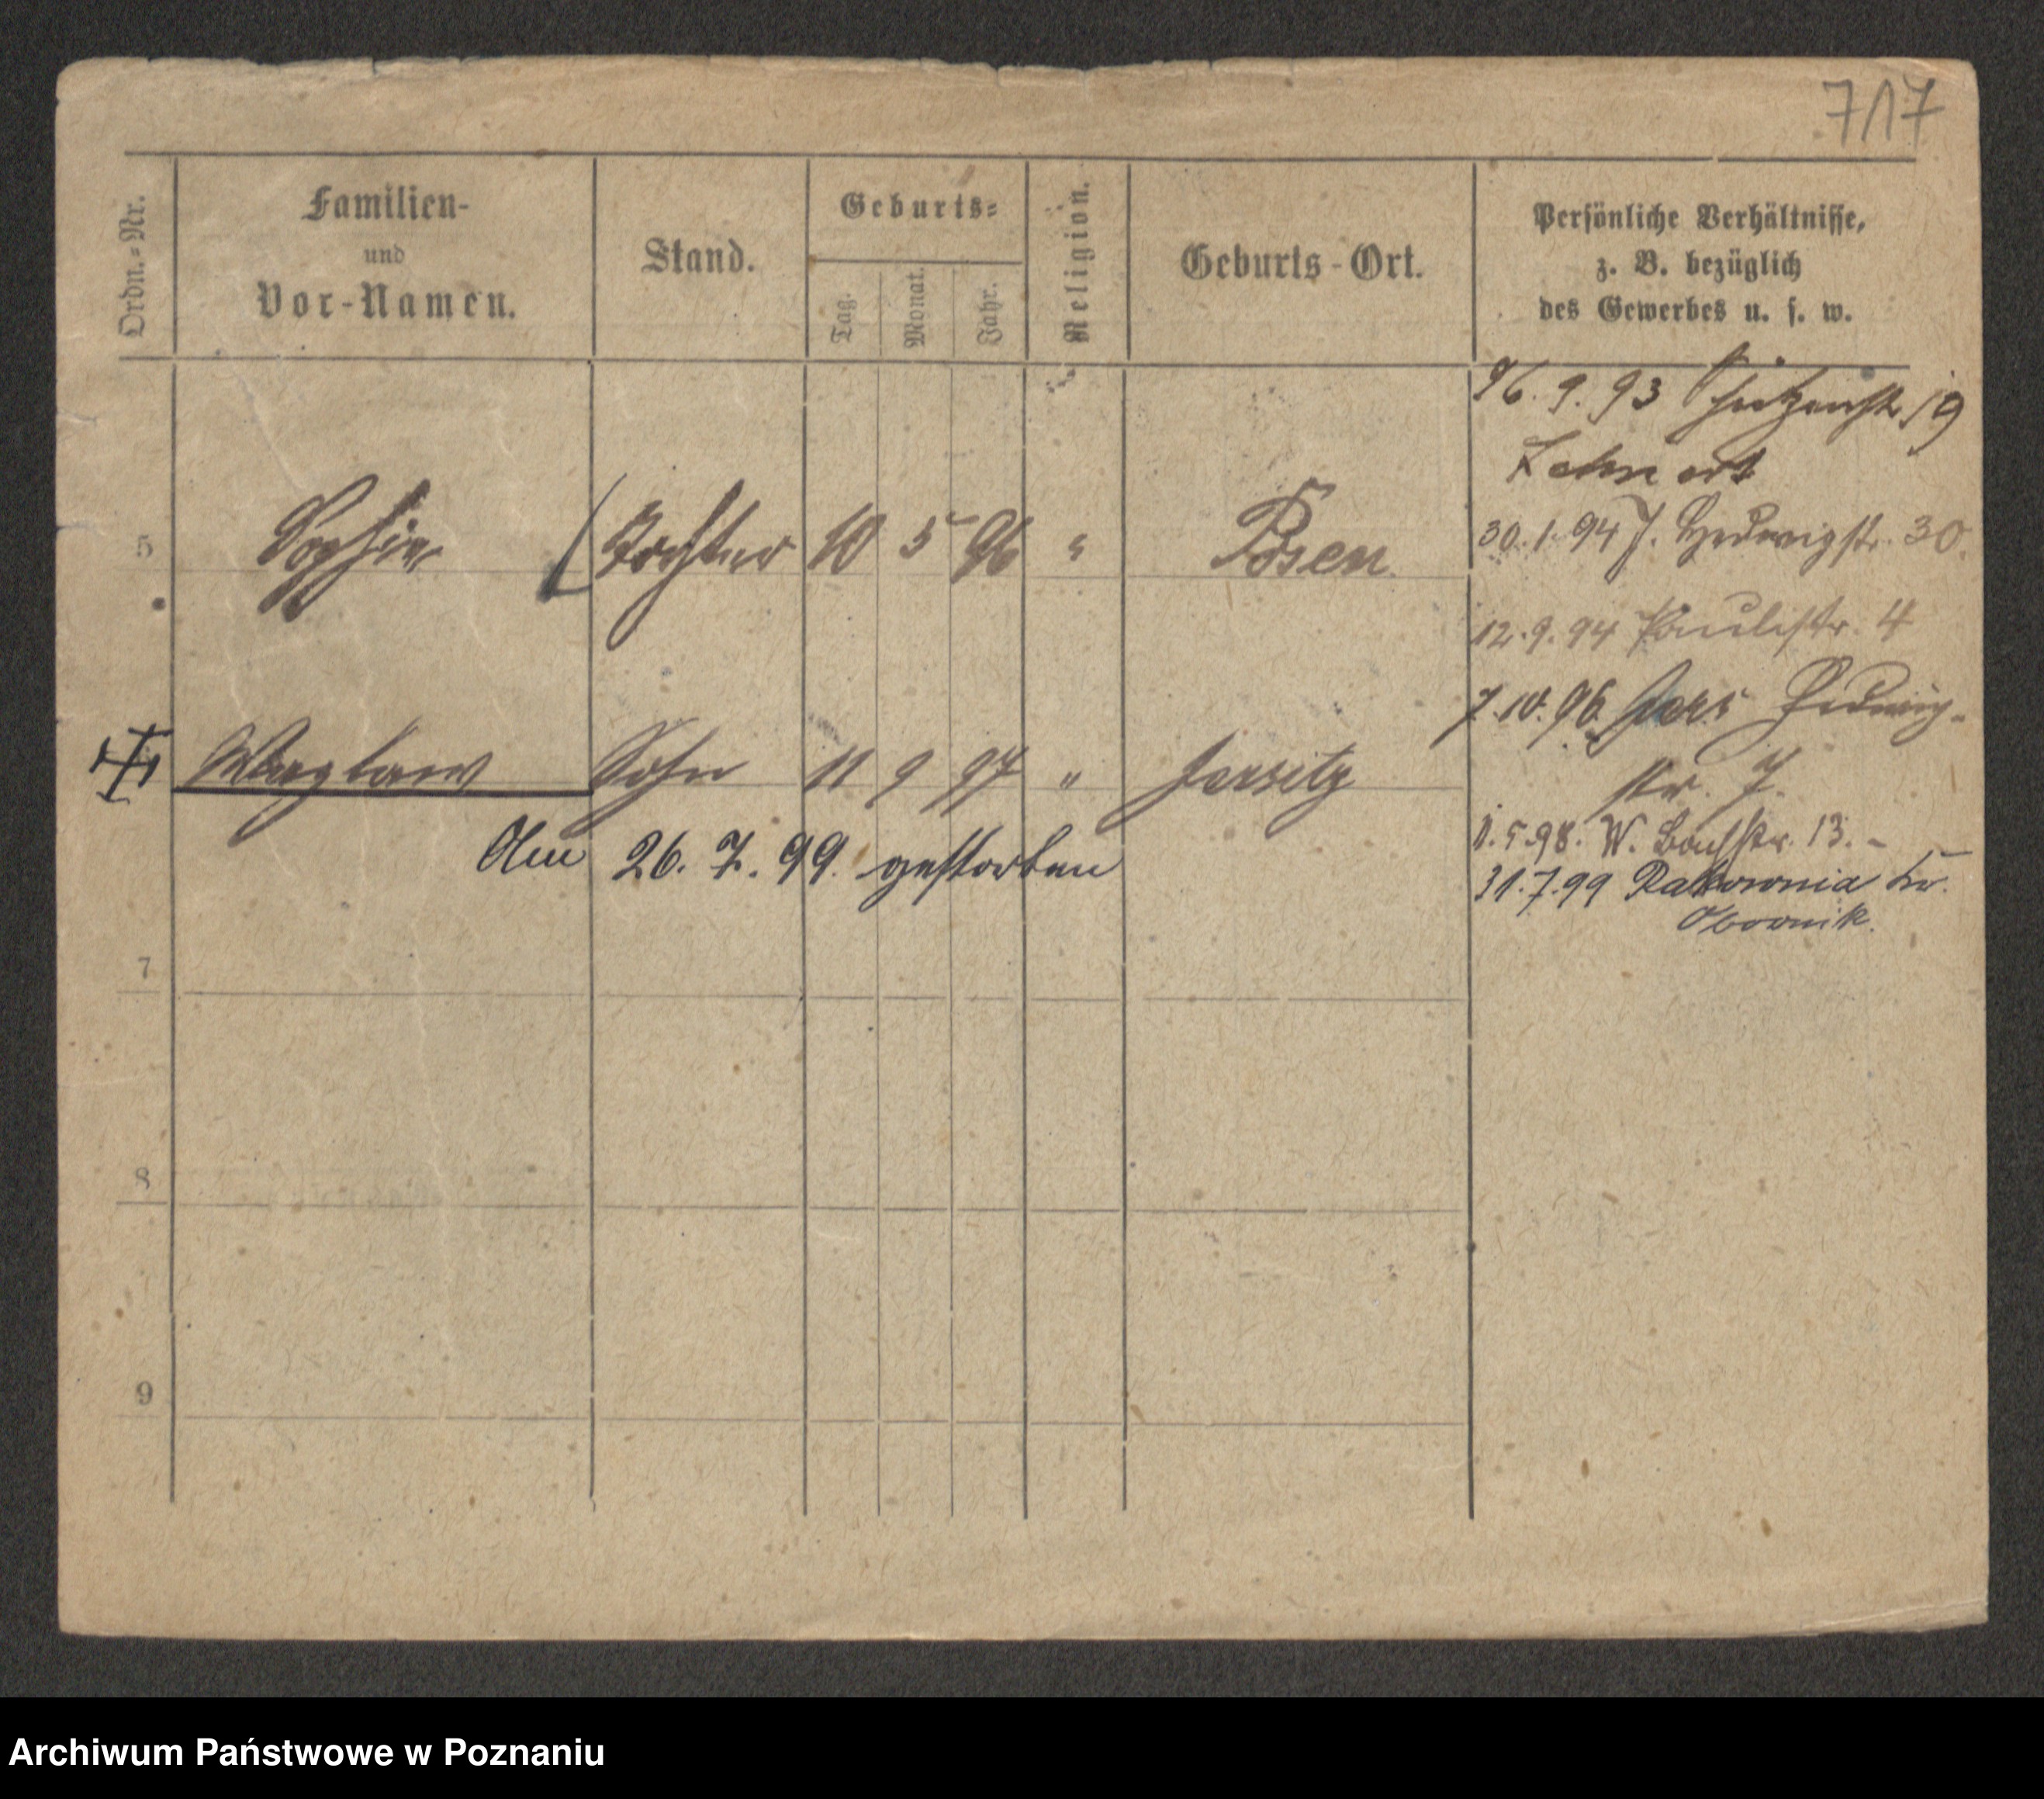 717
Ordn.-Nr.
Familien-
und
Vor-Namen.
Stand.
Geburts-
Tag.
Monat.
Jahr.
Religion.
Geburts-Ort.
Persönliche Verhältnisse,
z. B. bezüglich
des Gewerbes u. s. w.
26.9.93 Schützenstr. 19
5 Sophie Tochter 10 5 96 " Posen
30.1.94 J. Hedwigstr. 30.
12.9.94 Paulistr. 4
7.10.96 Jers Hedwig-
str. 7.
6 Wazlaw Sohn 11 9 97 " Jersitz
Am 26.7.99. gestorben
1.5.98. W. Bachstr. 13. -
31.7.99 Rakownia Kr.
Obornik.
7
8
9
Archiwum Państwowe w Poznaniu